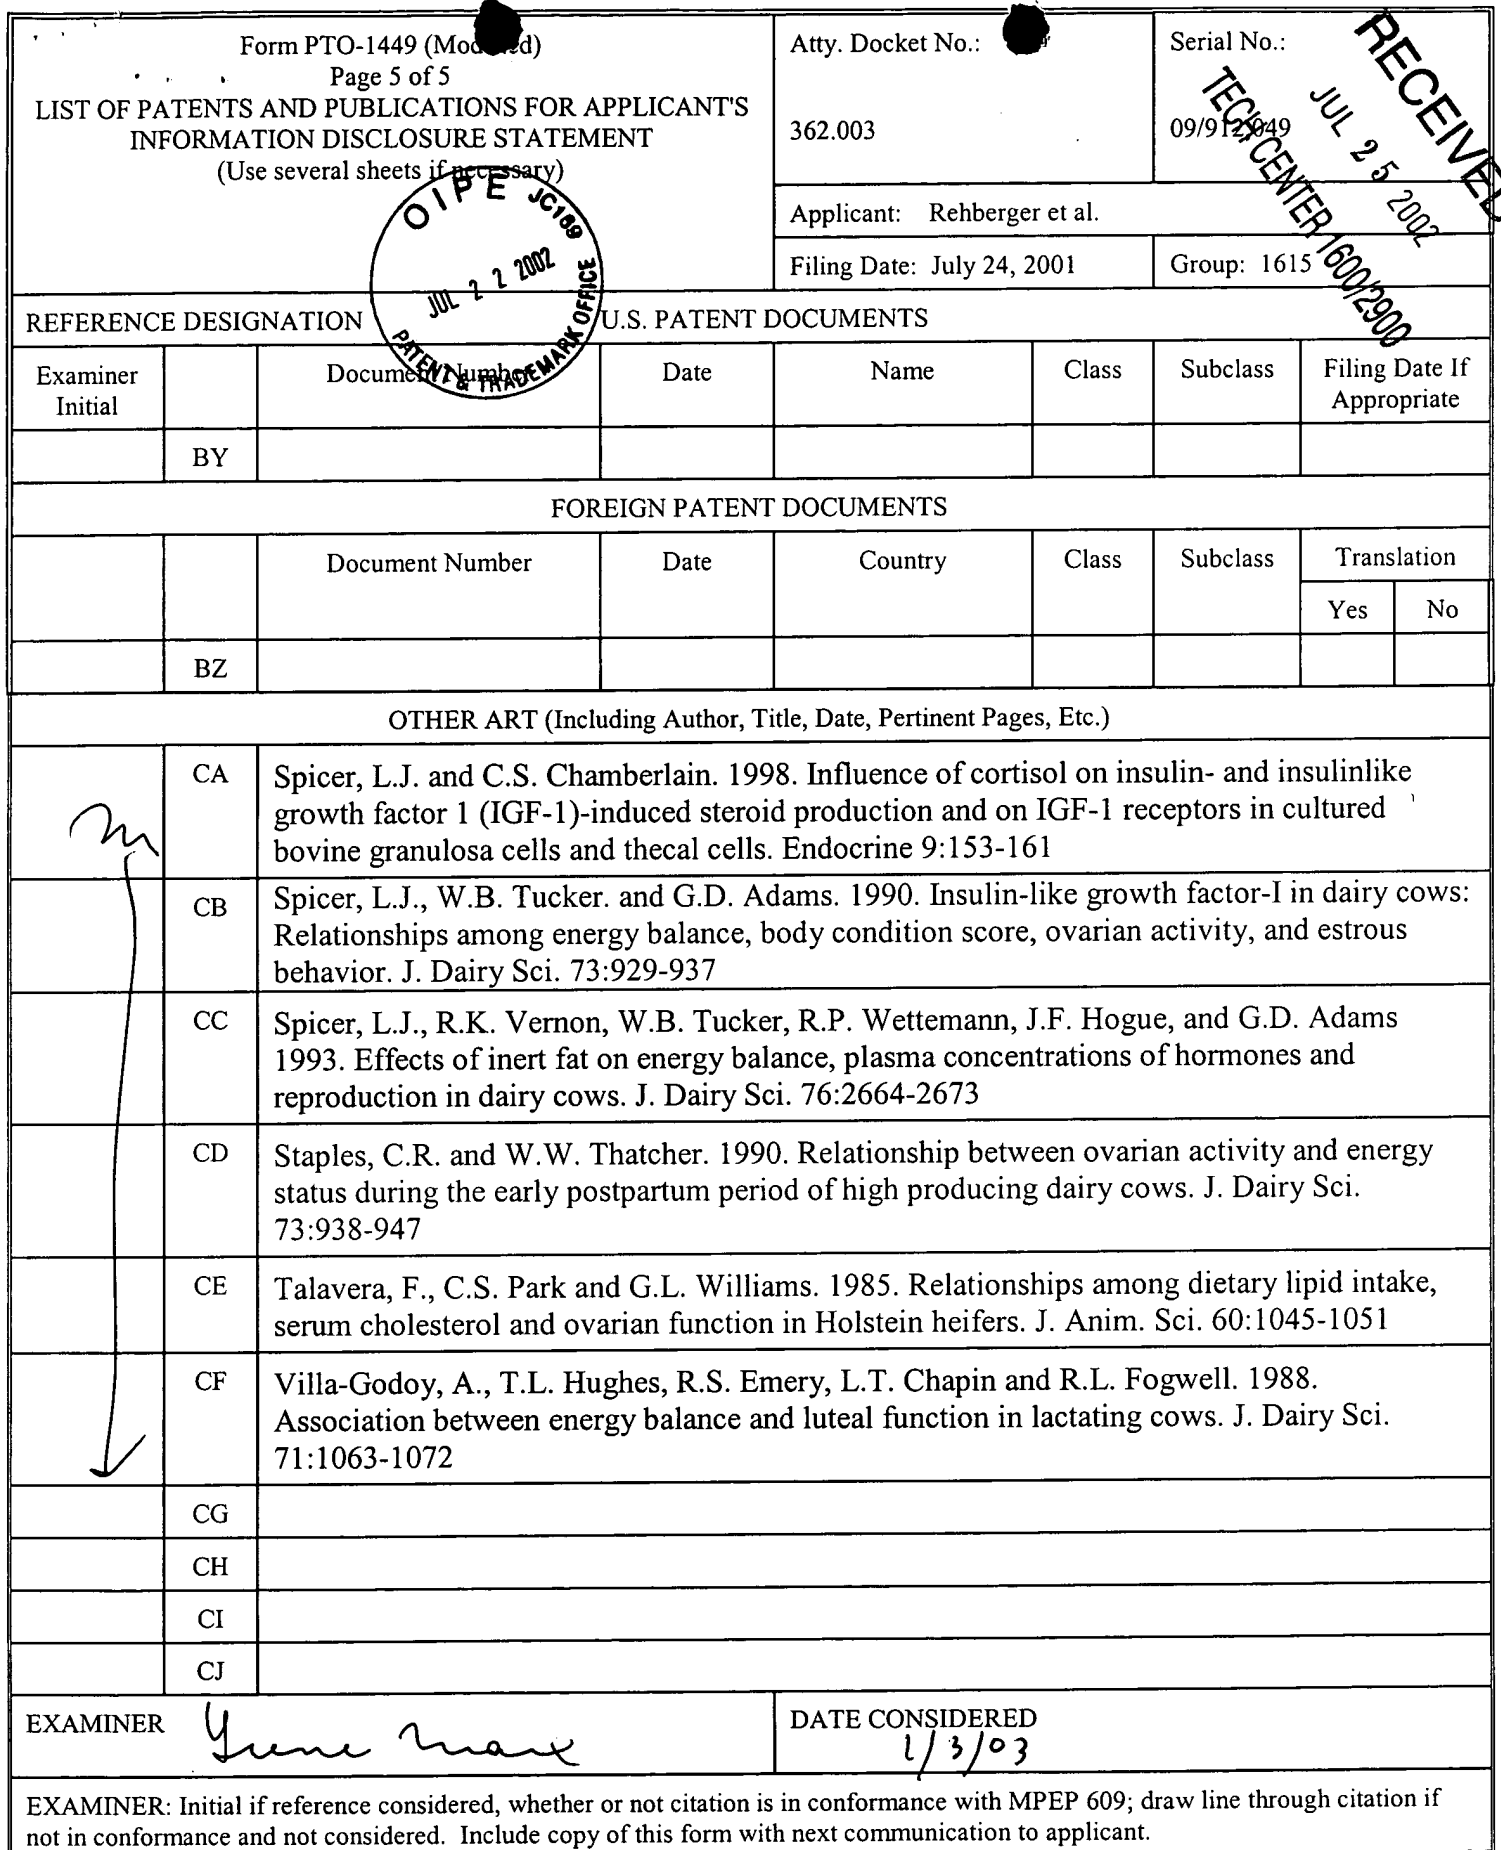 Form PTO-1449
Page 5 of 5
LIST OF PATENTS AND PUBLICATIONS FOR APPLICANT'S
INFORMATION DISCLOSURE STATEMENT
(Use several sheets if necessary)
Atty. Docket No.:
362.003
Serial No.:
09/912,049
Applicant: Rehberger et al.
Filing Date: July 24, 2001
Group: 1615
RECEIVED
JUL 25 2002
TECH CENTER 1600/2900
OIPE JC169
JUL 22 2002
PATENT & TRADEMARK OFFICE
REFERENCE DESIGNATION
U.S. PATENT DOCUMENTS
Examiner
Initial
Document Number
Date
Name
Class
Subclass
Filing Date If
Appropriate
BY
FOREIGN PATENT DOCUMENTS
Document Number
Date
Country
Class
Subclass
Translation
Yes
No
BZ
OTHER ART (Including Author, Title, Date, Pertinent Pages, Etc.)
CA
Spicer, L.J. and C.S. Chamberlain. 1998. Influence of cortisol on insulin- and insulinlike
growth factor 1 (IGF-1)-induced steroid production and on IGF-1 receptors in cultured
bovine granulosa cells and thecal cells. Endocrine 9:153-161
CB
Spicer, L.J., W.B. Tucker. and G.D. Adams. 1990. Insulin-like growth factor-I in dairy cows:
Relationships among energy balance, body condition score, ovarian activity, and estrous
behavior. J. Dairy Sci. 73:929-937
CC
Spicer, L.J., R.K. Vernon, W.B. Tucker, R.P. Wettemann, J.F. Hogue, and G.D. Adams
1993. Effects of inert fat on energy balance, plasma concentrations of hormones and
reproduction in dairy cows. J. Dairy Sci. 76:2664-2673
CD
Staples, C.R. and W.W. Thatcher. 1990. Relationship between ovarian activity and energy
status during the early postpartum period of high producing dairy cows. J. Dairy Sci.
73:938-947
CE
Talavera, F., C.S. Park and G.L. Williams. 1985. Relationships among dietary lipid intake,
serum cholesterol and ovarian function in Holstein heifers. J. Anim. Sci. 60:1045-1051
CF
Villa-Godoy, A., T.L. Hughes, R.S. Emery, L.T. Chapin and R.L. Fogwell. 1988.
Association between energy balance and luteal function in lactating cows. J. Dairy Sci.
71:1063-1072
CG
CH
CI
CJ
EXAMINER
Irene Marx
DATE CONSIDERED
1/3/03
EXAMINER: Initial if reference considered, whether or not citation is in conformance with MPEP 609; draw line through citation if
not in conformance and not considered. Include copy of this form with next communication to applicant.